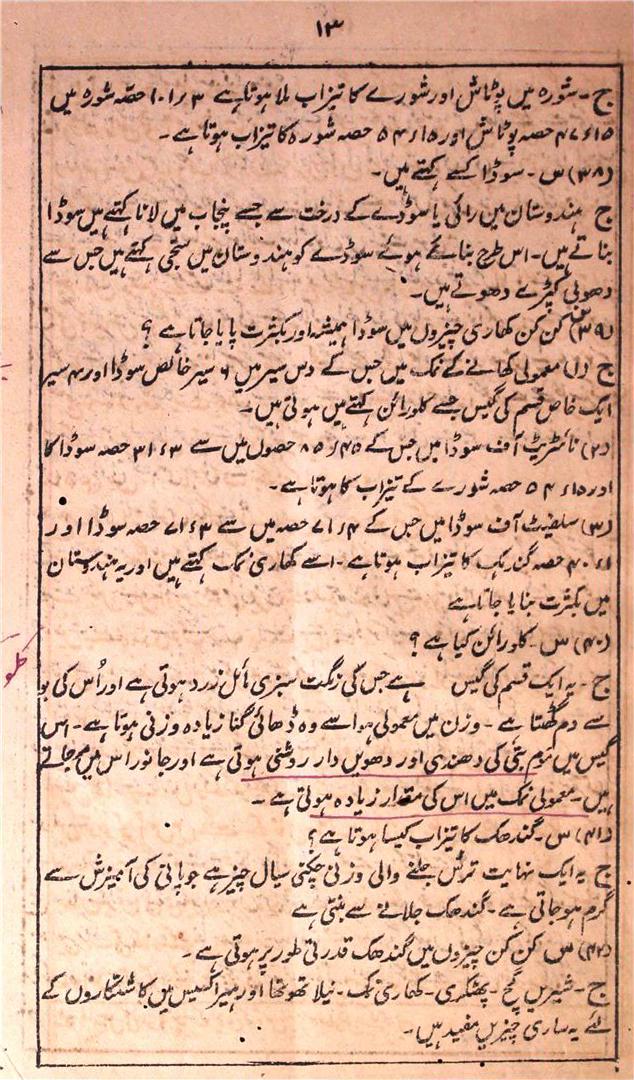 ۱۳
ج۔ شورہ میں پوٹاش اور شورے کا تیزاب ملا ہوتا ہے ۱۰۱٫۳ حصہ شورہ میں
۴۷٫۱۵ حصہ پوٹاش اور ۵۴٫۱۵ حصہ شورہ کا تیزاب ہوتا ہے۔
(۳۸) س۔ سوڈا کسے کہتے ہیں۔
ج ہندوستان میں راکی یا سوڈے کے درخت سے جسے پنجاب میں لانا کہتے ہیں سوڈا
بناتے ہیں۔ اس طرح بنائے ہوئے سوڈے کو ہندوستان میں سجی کہتے ہیں جس سے
دھوبی کپڑے دھوتے ہیں۔
(۳۹) س کن کن کھاری چیزوں میں سوڈا ہمیشہ اور بکثرت پایا جاتا ہے؟
ج (۱) معمولی کھانے کے نمک میں جس کے دس سیر میں ۶ سیر خالص سوڈا اور ۴ سیر
ایک خاص قسم کی گیس جسے کلورائن کہتے ہیں ہوتی ہیں۔
(۲) نائٹریٹ آف سوڈا میں جس کے ۸۵٫۴۵ حصوں میں سے ۳۱٫۳ حصہ سوڈا کا
اور ۵۴٫۱۵ حصہ شورے کے تیزاب کا ہوتا ہے۔
(۳) سلفیٹ آف سوڈا میں جس کے ۷۱٫۴ حصہ میں سے ۳۱٫۳ حصہ سوڈا اور
۴۰٫۱ حصہ گندہک کا تیزاب ہوتا ہے۔ اسے کھاری نمک کہتے ہیں اور یہ ہندوستان
میں بکثرت بنایا جاتا ہے
(۴۰) س۔ کلورائن کیا ہے؟
ج۔ یہ ایک قسم کی گیس ہے جس کی رنگت سبزی مائل زرد ہوتی ہے اور اُس کی بو
سے دم گھٹتا ہے۔ وزن میں معمولی ہوا سے وہ ڈھائی گنا زیادہ وزنی ہوتا ہے۔ اس
گیس میں موم بتی کی دھندلی اور دھویں دار روشنی ہوتی ہے اور جانور اس میں مر جاتے
ہیں۔ معمولی نمک میں اس کی مقدار زیادہ ہوتی ہے۔
(۴۱) س۔ گندھک کا تیزاب کیسا ہوتا ہے؟
ج یہ ایک نہایت ترش جلنے والی وزنی چکنی سیال چیز ہے جو پانی کی آمیزش سے
گرم ہو جاتی ہے۔ گندھک جلانے سے بنتی ہے
(۴۲) س کن کن چیزوں میں گندھک قدرتی طور پر ہوتی ہے۔
ج۔ شیریں گچ۔ پھٹکری۔ کھاری نمک۔ نیلا تھوتھا اور ہیرا کسیس میں کاشتکاروں کے
لئے یہ ساری چیزیں مفید ہیں۔